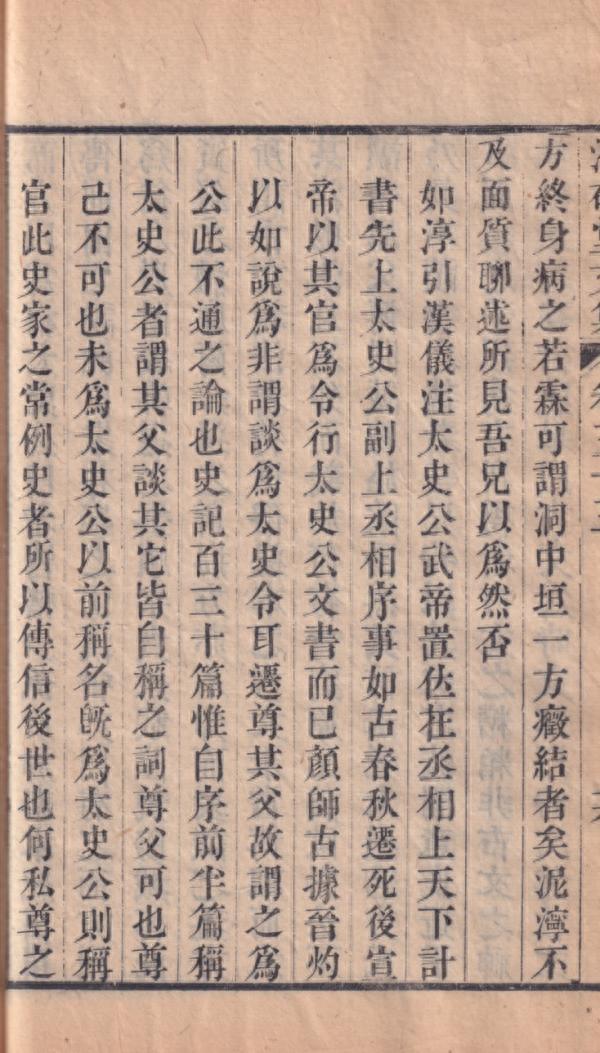 方終身病之若霖可謂洞中垣一方癥結者矣泥濘不
及面質聊述所見吾兄以為然否
如淳引漢儀注太史公武帝置位在丞相上天下計
書先上太史公副上丞相序事如古春秋遷死後宣
帝以其官爲令行太史公文書而已顏師古據晉灼
以如說爲非謂談爲太史令耳遷尊其父故謂之爲
公此不通之論也史記百三十篇惟自序前半篇稱
太史公者謂其父談其它皆自稱之詞尊父可也尊
己不可也未爲太史公以前稱名旣爲太史公則稱
官此史家之常例史者所以傳信後世也何私尊之